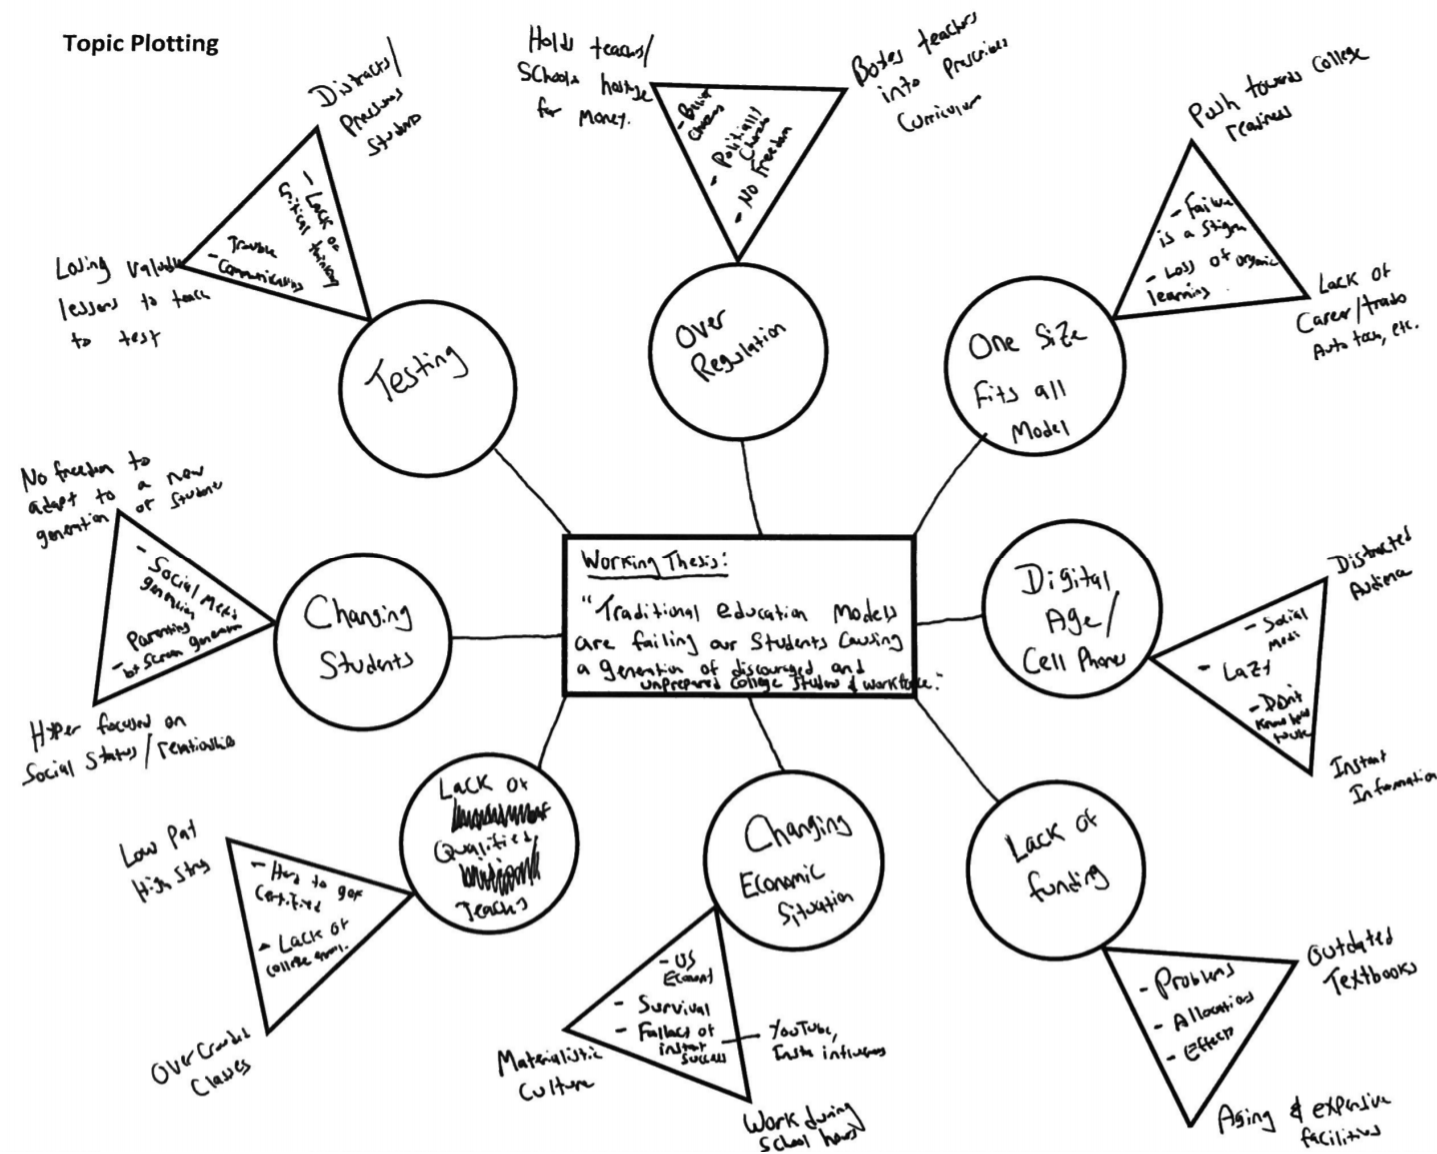 Topic Plotting
Distracts/
Pressures
Students
- Lack of
Critical thinking
- Trouble
Communicating
Losing valuable
lessons to teach
to test
Testing
Holds teachers/
Schools hostage
for Money.
Boxes teachers
into Prescribed
Curriculum
- Politically
- NO Freedom
Over
Regulation
Push towards College
readiness
- Failure
is a Stigma
- Loss of organic
learning
Lack of
Career/trade
Auto tech, etc.
One Size
Fits all
Model
No freedom to
adapt to a new
generation of Students
- Social Media
generation
- Parenting
by Screen generation
Hyper focused on
Social Status/relationships
Changing
Students
Working Thesis:
"Traditional education Models
are failing our Students Causing
a generation of discouraged and
unprepared College Students & workforce."
Digital
Age/
Cell Phones
Distracted
Audience
- Social
Medi
- Lazy
- Don't
Know how
to use
Instant
Information
Low Pay
High Stress
- Hard to get
Certified
- Lack of
college enroll.
Over Crowded
Classes
Lack of
Qualified
Teachers
Changing
Economic
Situation
- US
Economy
- Survival
- Fallacy of
instant
success
YouTube,
Insta influencers
Materialistic
Culture
Work during
School hours
Lack of
funding
- Problems
- Allocation
- Effects
Outdated
Textbooks
Aging & expensive
facilities